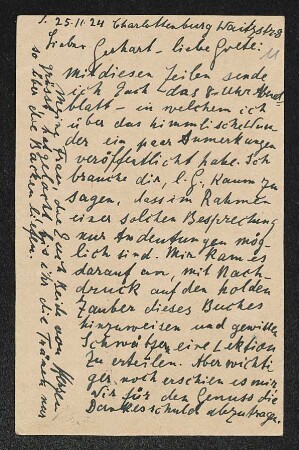 J. 25.11.24 Charlottenburg Waitzstr 8
Lieber Gerhart - liebe Grete:
11
Mit diesen Zeilen sende
ich Euch das 8-Uhr Abend
blatt - in welchem ich
über das himmlische
der ein paar Anmerkungen
veröffentlicht habe. Ich
brauche dir, l. G. kaum zu
sagen, dass im Rahmen
einer solchen Besprechung
nur Andeutungen mög
lich sind. Mir kam es
darauf an, mit Nach
druck auf den holden
Zauber dieses Buches
hinzuweisen und gewissen
Schwätzer eine Lektion
zu erteilen. Aber wichti
ger noch erschien es mir
Dir für den Genuss die
Dankesschuld abzutragen.
Meine Frau, die Euch beide von Herzen
grüsst hat gelacht, bis ihr die Tränen nur
so über die Backen liefen.